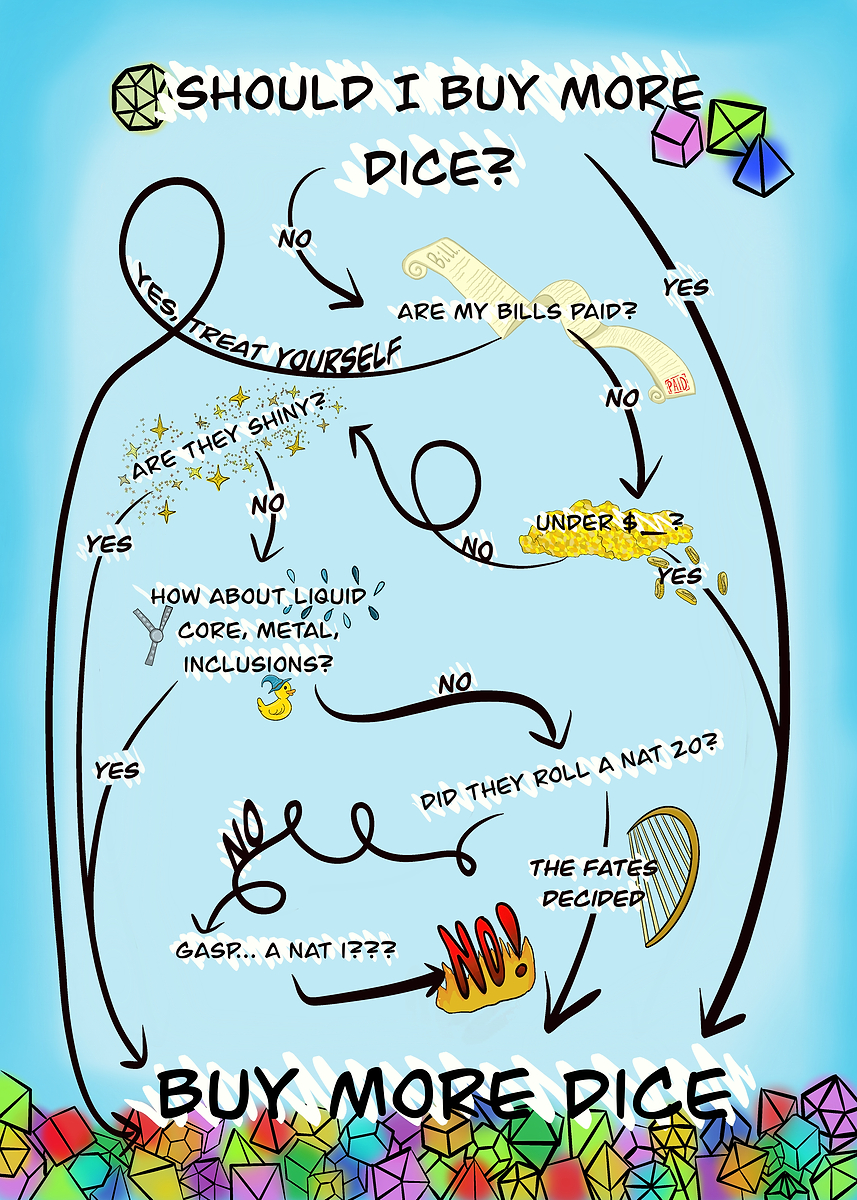 SHOULD I BUY MORE
DICE?
NO
YES
Bill
ARE MY BILLS PAID?
PAID
YES, TREAT YOURSELF
NO
ARE THEY SHINY?
NO
YES
UNDER $__?
NO
YES
HOW ABOUT LIQUID
CORE, METAL,
INCLUSIONS?
NO
YES
DID THEY ROLL A NAT 20?
NO
THE FATES
DECIDED
GASP... A NAT 1???
NO!
BUY MORE DICE